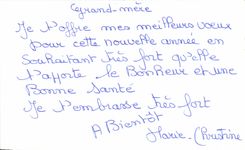 grand-mère
Je t'offre mes meilleurs vœux
pour cette nouvelle année en
souhaitant très fort qu'elle
t'apporte le Bonheur et une
Bonne Santé
Je t'embrasse très fort
A Bientôt
Marie-Christine